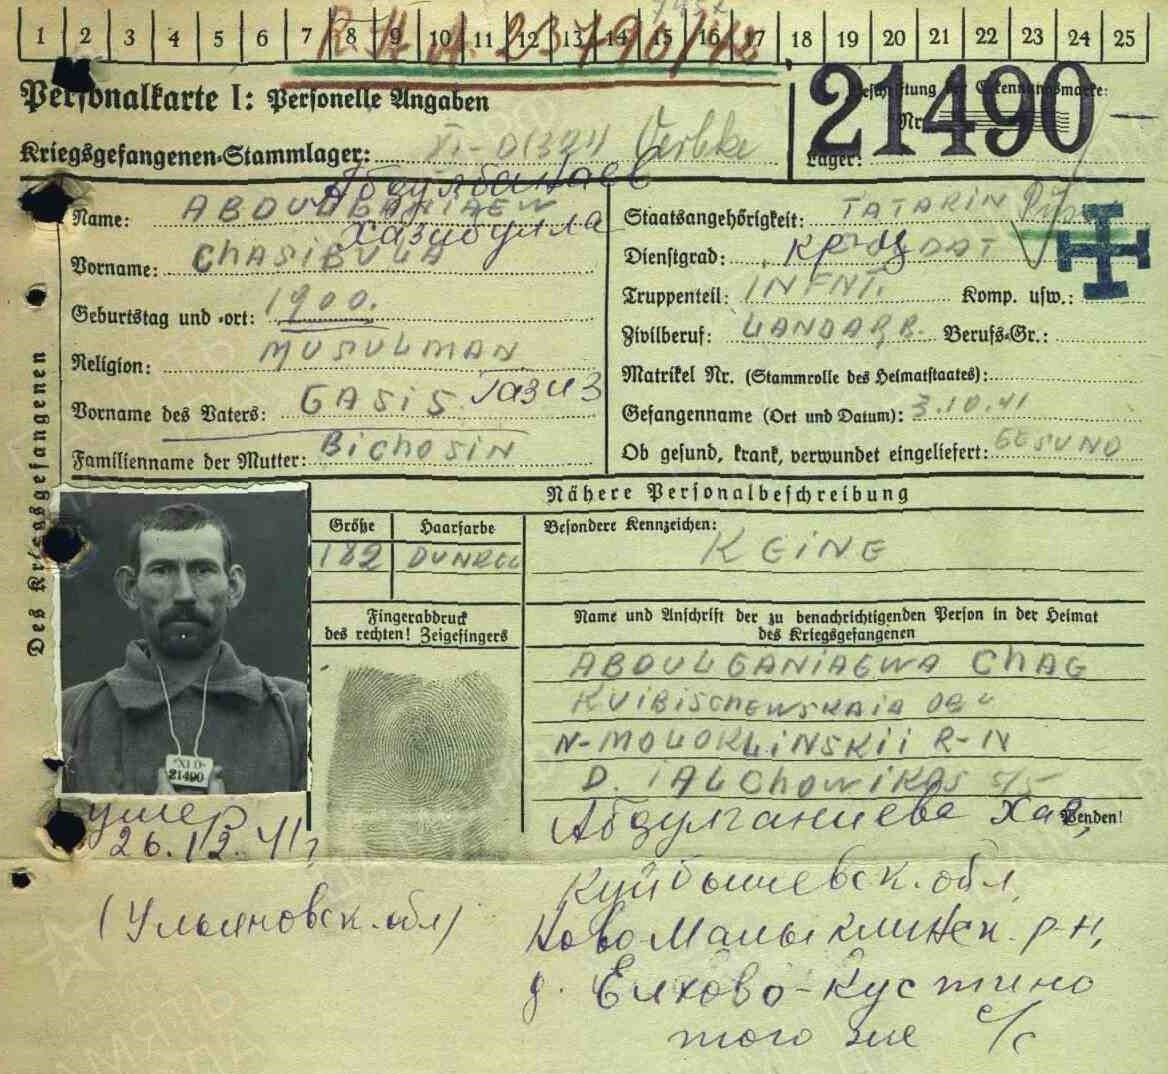 1 2 3 4 5 6 7 8 9 10 11 12 13 14 15 16 17 18 19 20 21 22 23 24 25
R.H.A. 23790/42
Personalkarte I: Personelle Angaben
Beschriftung der Erkennungsmarke:
21490
Nr.
Kriegsgefangenen-Stammlager: XI-D/321 Oerbke
Lager:
Абдулганиев
Name: ABDULGANIAEW
Хазибулла
Vorname: CHASIBULA
Geburtstag und -ort: 1900.
Religion: MUSULMAN
Vorname des Vaters: GASIS Газиз
Familienname der Mutter: BICHOSIN
Staatsangehörigkeit: TATARIN
Dienstgrad: SOLDAT кр-ц
Truppenteil: INFNT. Komp. usw.:
Zivilberuf: LANDARB. Berufs-Gr.:
Matrikel Nr. (Stammrolle des Heimatstaates):
Gefangenname (Ort und Datum): 3.10.41
Ob gesund, krank, verwundet eingeliefert: GESUND
Des Kriegsgefangenen
Nähere Personalbeschreibung
Größe Haarfarbe Besondere Kennzeichen:
182 DUNKEL KEINE
Fingerabdruck
des rechten! Zeigefingers
Name und Anschrift der zu benachrichtigenden Person in der Heimat
des Kriegsgefangenen
ABDULGANIAEWA CHAG
KUIBISCHEWSKAIA OBL
N-MOLOKLINSKII R-N
D. IALCHOWIKAS S/S
XI D
21490
умер
26.12.41г
Абдулганиева Хаг,
Wenden!
Куйбышевск. обл,
(Ульяновск. обл)
Ново Малыклинск. р-н,
д. Елхово-Кустино
того же с/с